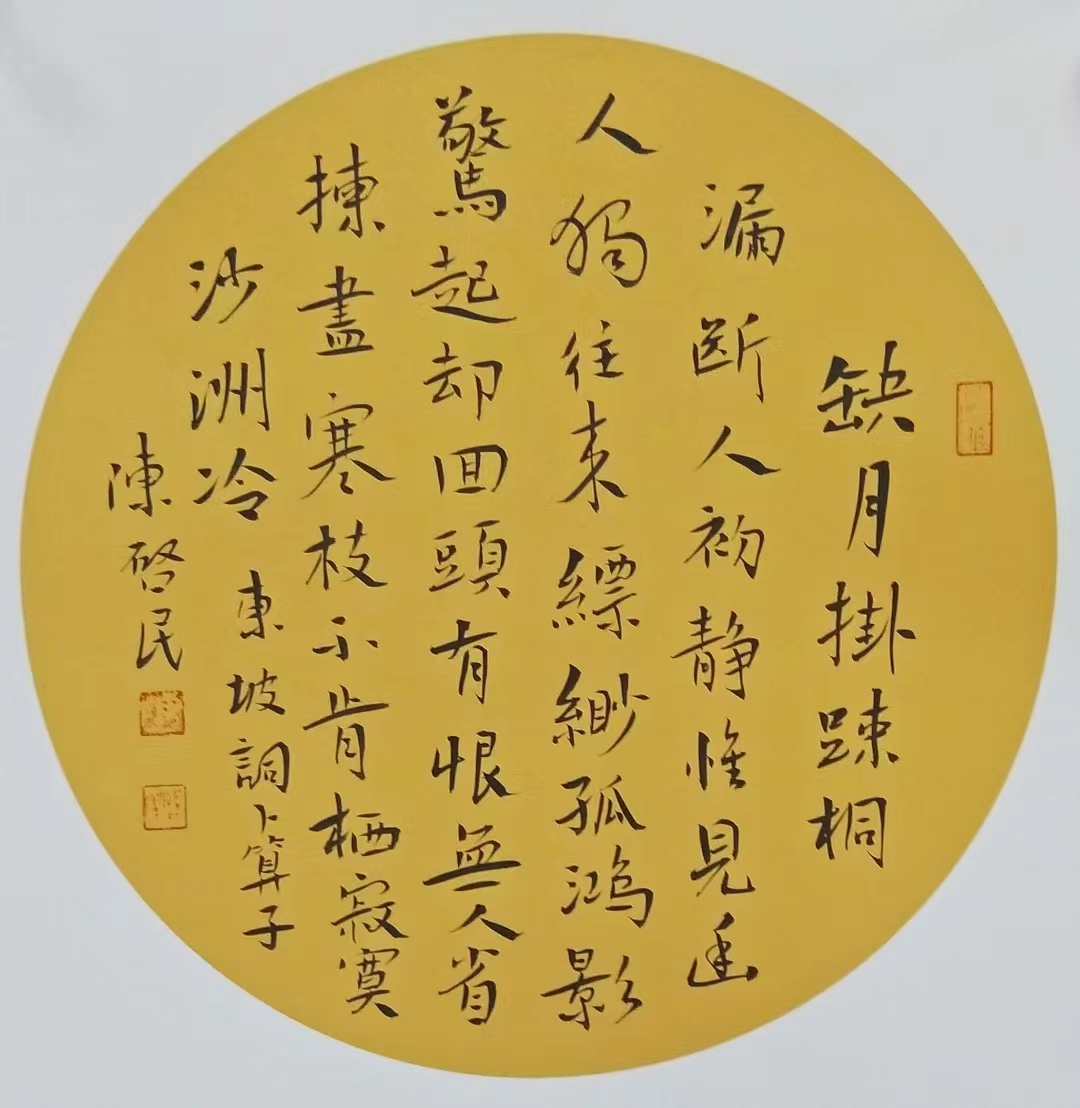 缺月掛踈桐
漏断人初静惟見幽
人獨往来縹緲孤鴻影
驚起却回頭有恨無人省
揀盡寒枝不肯栖寂寞
沙洲冷 東坡詞卜算子
陳啓民